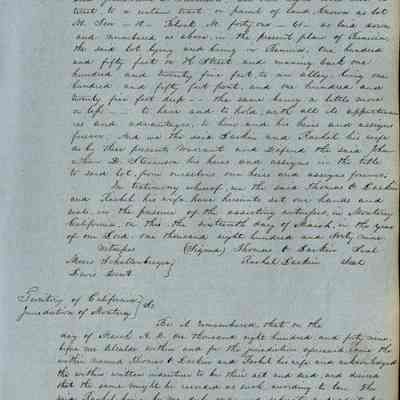 tract to a certain tract or parcel of land known as lot
M. Ten - 10 - Block M. forty one - 41 - as laid down
and numbered as above, in the present plan of Benicia
the said lot lying and being in Benicia, One hundred
and fifty feet on H Street and running back one
hundred and twenty five feet, to an alley, being one
hundred and fifty feet front, and one hundred and
twenty five feet deep - the same being a little more
or less - to have and to hold, with all its appurtenan
ces and advantages, to him and his heirs and assigns
forever. And we the said Larkin and Rachel his wife
do by these presents Warrant and Defend the said John
D. Stevenson his heirs and assigns in the title
to said lot, from ourselves our heirs and assigns forever.
In testimony whereof, we the said Thomas O Larkin
and Rachel his wife have hereunto set our hands and
seals, in the presence of the assisting witnesses, in Monterey
California, on this, the sixteenth day of March, in the year
of our Lord, one thousand eight hundred and forty nine
Witness (Signed) Thomas O Larkin Seal
Moses Schallenberger Rachel Larkin Seal
Davis Dent
Territory of California
Jurisdiction of Monterey ss.
Be it remembered that on the
day of March A. D. one thousand eight hundred and forty nine
before me Alcalde within and for the jurisdiction aforesaid came the
within named Thomas O Larkin and Rachel his wife and acknowledged
the within written indenture to be their act and deed and desired
that the same might be recorded as such according to law. The